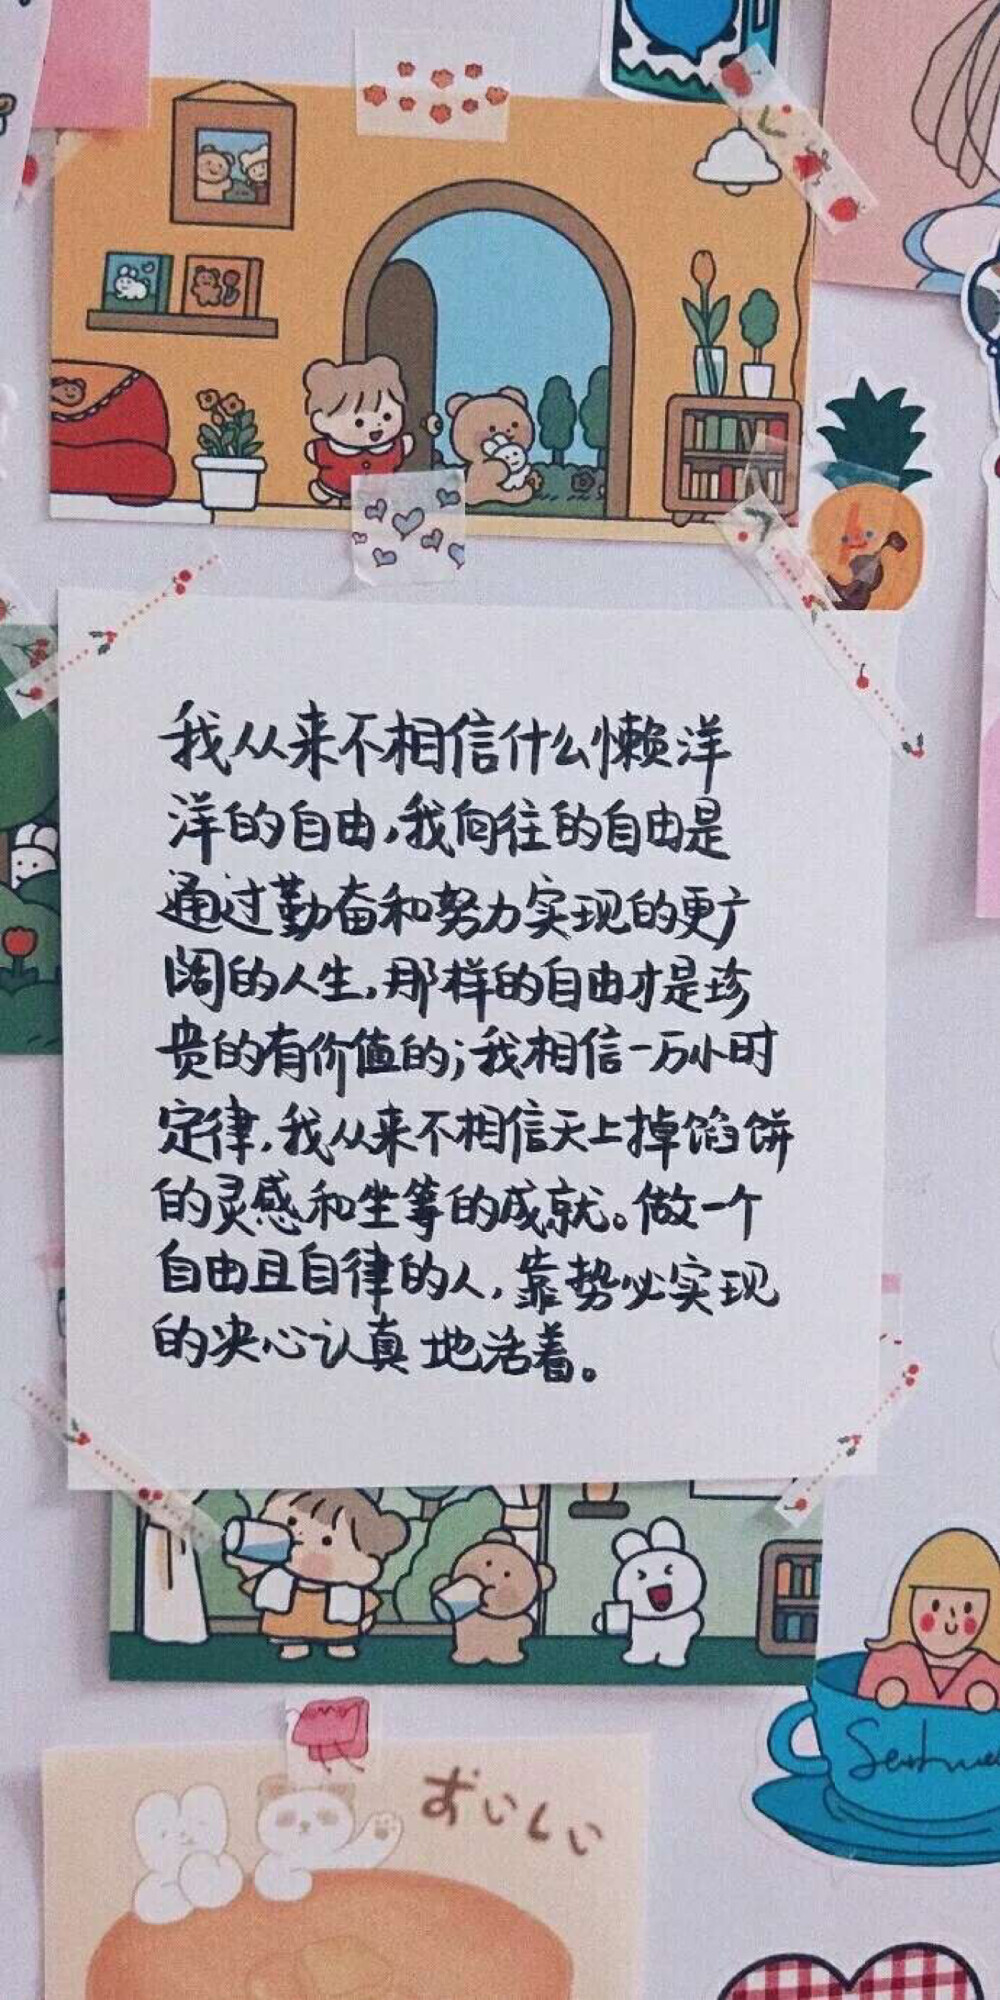 我从来不相信什么懒洋
洋的自由,我向往的自由是
通过勤奋和努力实现的更广
阔的人生,那样的自由才是珍
贵的有价值的;我相信一万小时
定律,我从来不相信天上掉馅饼
的灵感和坐等的成就。做一个
自由且自律的人,靠势必实现
的决心认真地活着。
おいしい